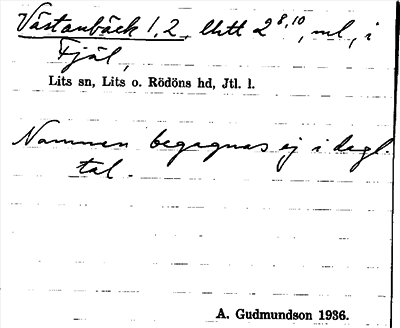 Västanbäck 1, 2, litt 2 8, 10, ml, i
Fjäl,
Lits sn, Lits o. Rödöns hd, Jtl. l.
Namnen begagnas ej i dagl.
tal.
A. Gudmundson 1936.